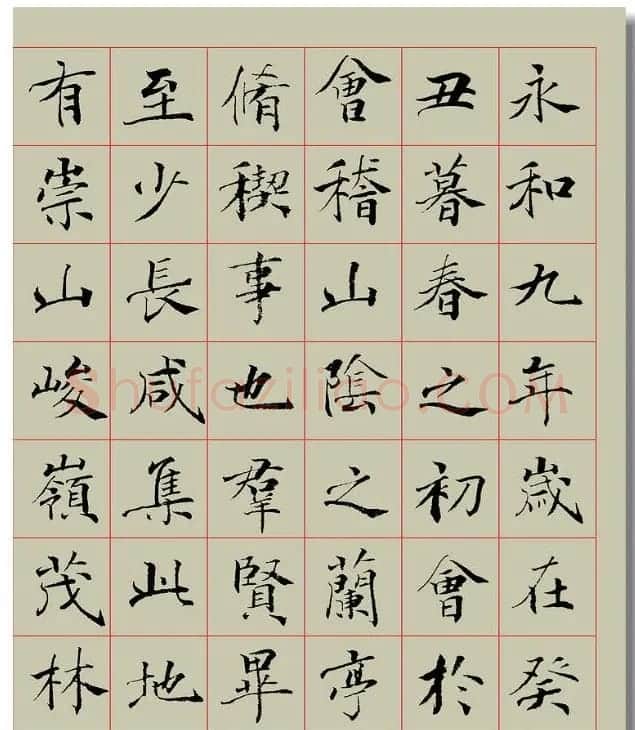 永和九年歲在癸
丑暮春之初會於
會稽山陰之蘭亭
脩稧事也羣賢畢
至少長咸集此地
有崇山峻嶺茂林
Shufaziliao.COM